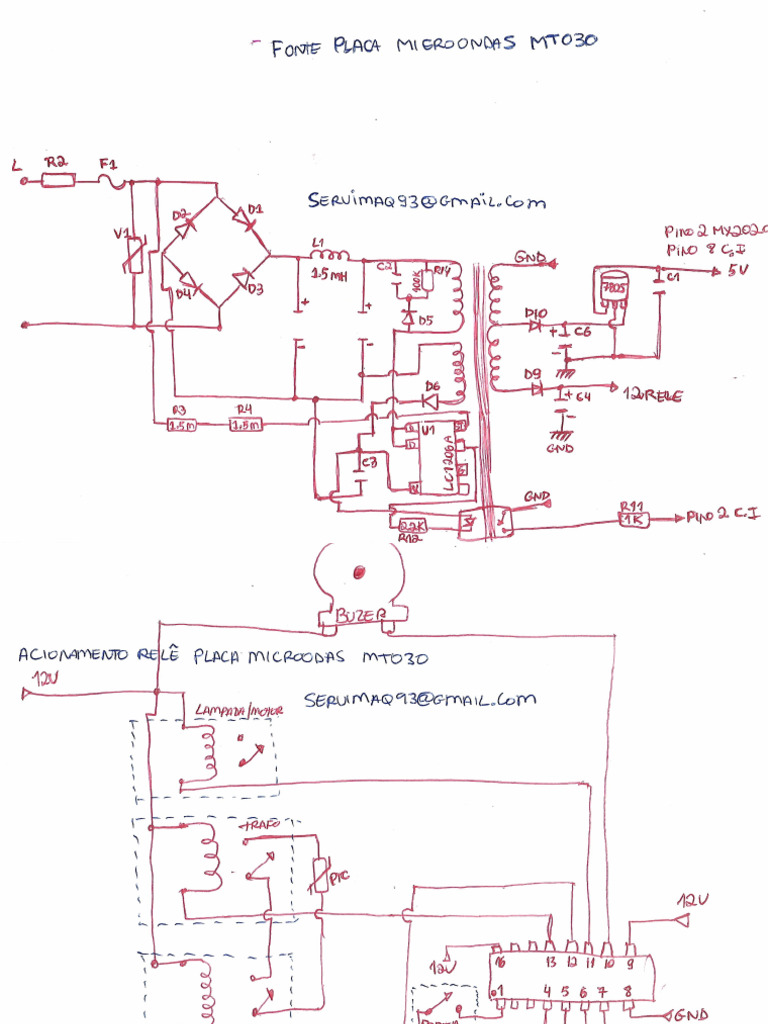 - FONTE PLACA MICROONDAS MT030
L
R2
F1
SERVIMAQ93@GMAIL.COM
D2
D1
V1
D4
D3
L1
1.5MH
+
+
-
-
C2
100K
R14
D5
GND
PINO 2 MX2020
PINO 8 C.I
7805
C1
5V
D10
+
C6
-
D9
+
C4
-
12V RELE
GND
D6
R3
1.5M
R4
1.5M
U1
LC1206A
C3
2.2K
R12
GND
R11
1K
PINO 2 C.I
BUZER
ACIONAMENTO RELÊ PLACA MICROODAS MT030
12V
SERVIMAQ93@GMAIL.COM
LAMPADA/MOTOR
TRAFO
PTC
12V
12V
16
13
12
11
10
9
1
4
5
6
7
8
GND